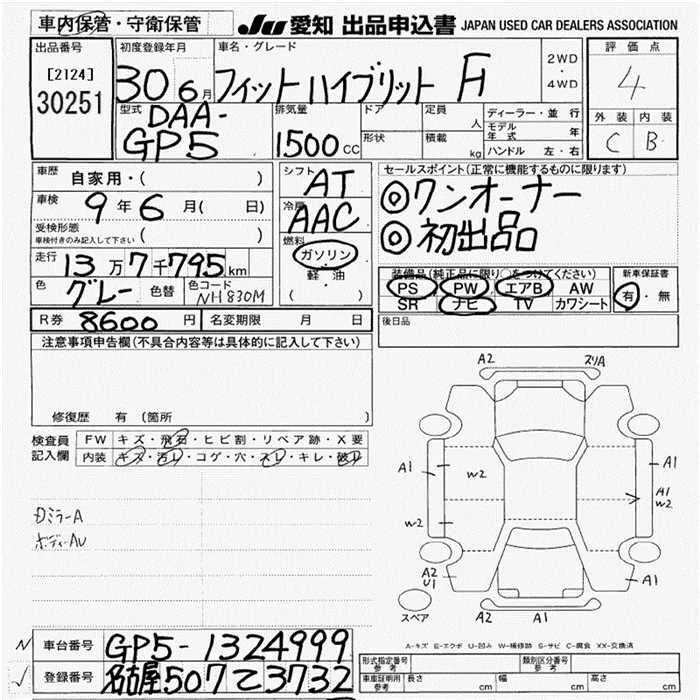 車内保管・守衛保管
JU 愛知 出品申込書 JAPAN USED CAR DEALERS ASSOCIATION
出品番号
[2124]
30251
初度登録年月
30 6月
車名・グレード
フィットハイブリット F
2WD
・
4WD
評価点
4
外装 内装
C B
型式
DAA-
GP5
排気量
1500cc
ドア
形状
定員
人
積載
kg
ディーラー・並行
モデル
年式 年
ハンドル 左・右
車歴
自家用・( )
車検
9年6月( 日)
受検形態
車検付きのみ記入して下さい ( )
走行
13万7千795km
色
グレー
色替
色コード
NH830M
シフト
AT
冷房
AAC
燃料
ガソリン
・
軽・油
( )
セールスポイント(正常に機能するものに限ります)
◎ワンオーナー
◎初出品
装備品(純正品に限り○をつけてください)
PS PW エアB AW
SR ナビ TV カワシート
新車保証書
有・無
R券 8600円
名変期限 月 日
後日品
注意事項申告欄(不具合内容等は具体的に記入して下さい)
修復歴 有 (箇所
検査員
記入欄
FW キズ・飛石・ヒビ割・リペア跡・X要
内装 キズ・汚レ・コゲ・穴・スレ・キレ・破レ
ボディーAU
A2 スリA
A1 W2 A1
A1
W2
W2
A2
U1 A1
スペア
A2 A1
A-キズ E-エクボ U-凹み W-補修跡 S-サビ C-腐食 XX-交換済
車台番号 GP5-1324999
登録番号 名古屋507て3732
形式指定番号
参考
類別区分番号
参考
車庫証明用
参考
長さ cm 幅 cm 高さ cm